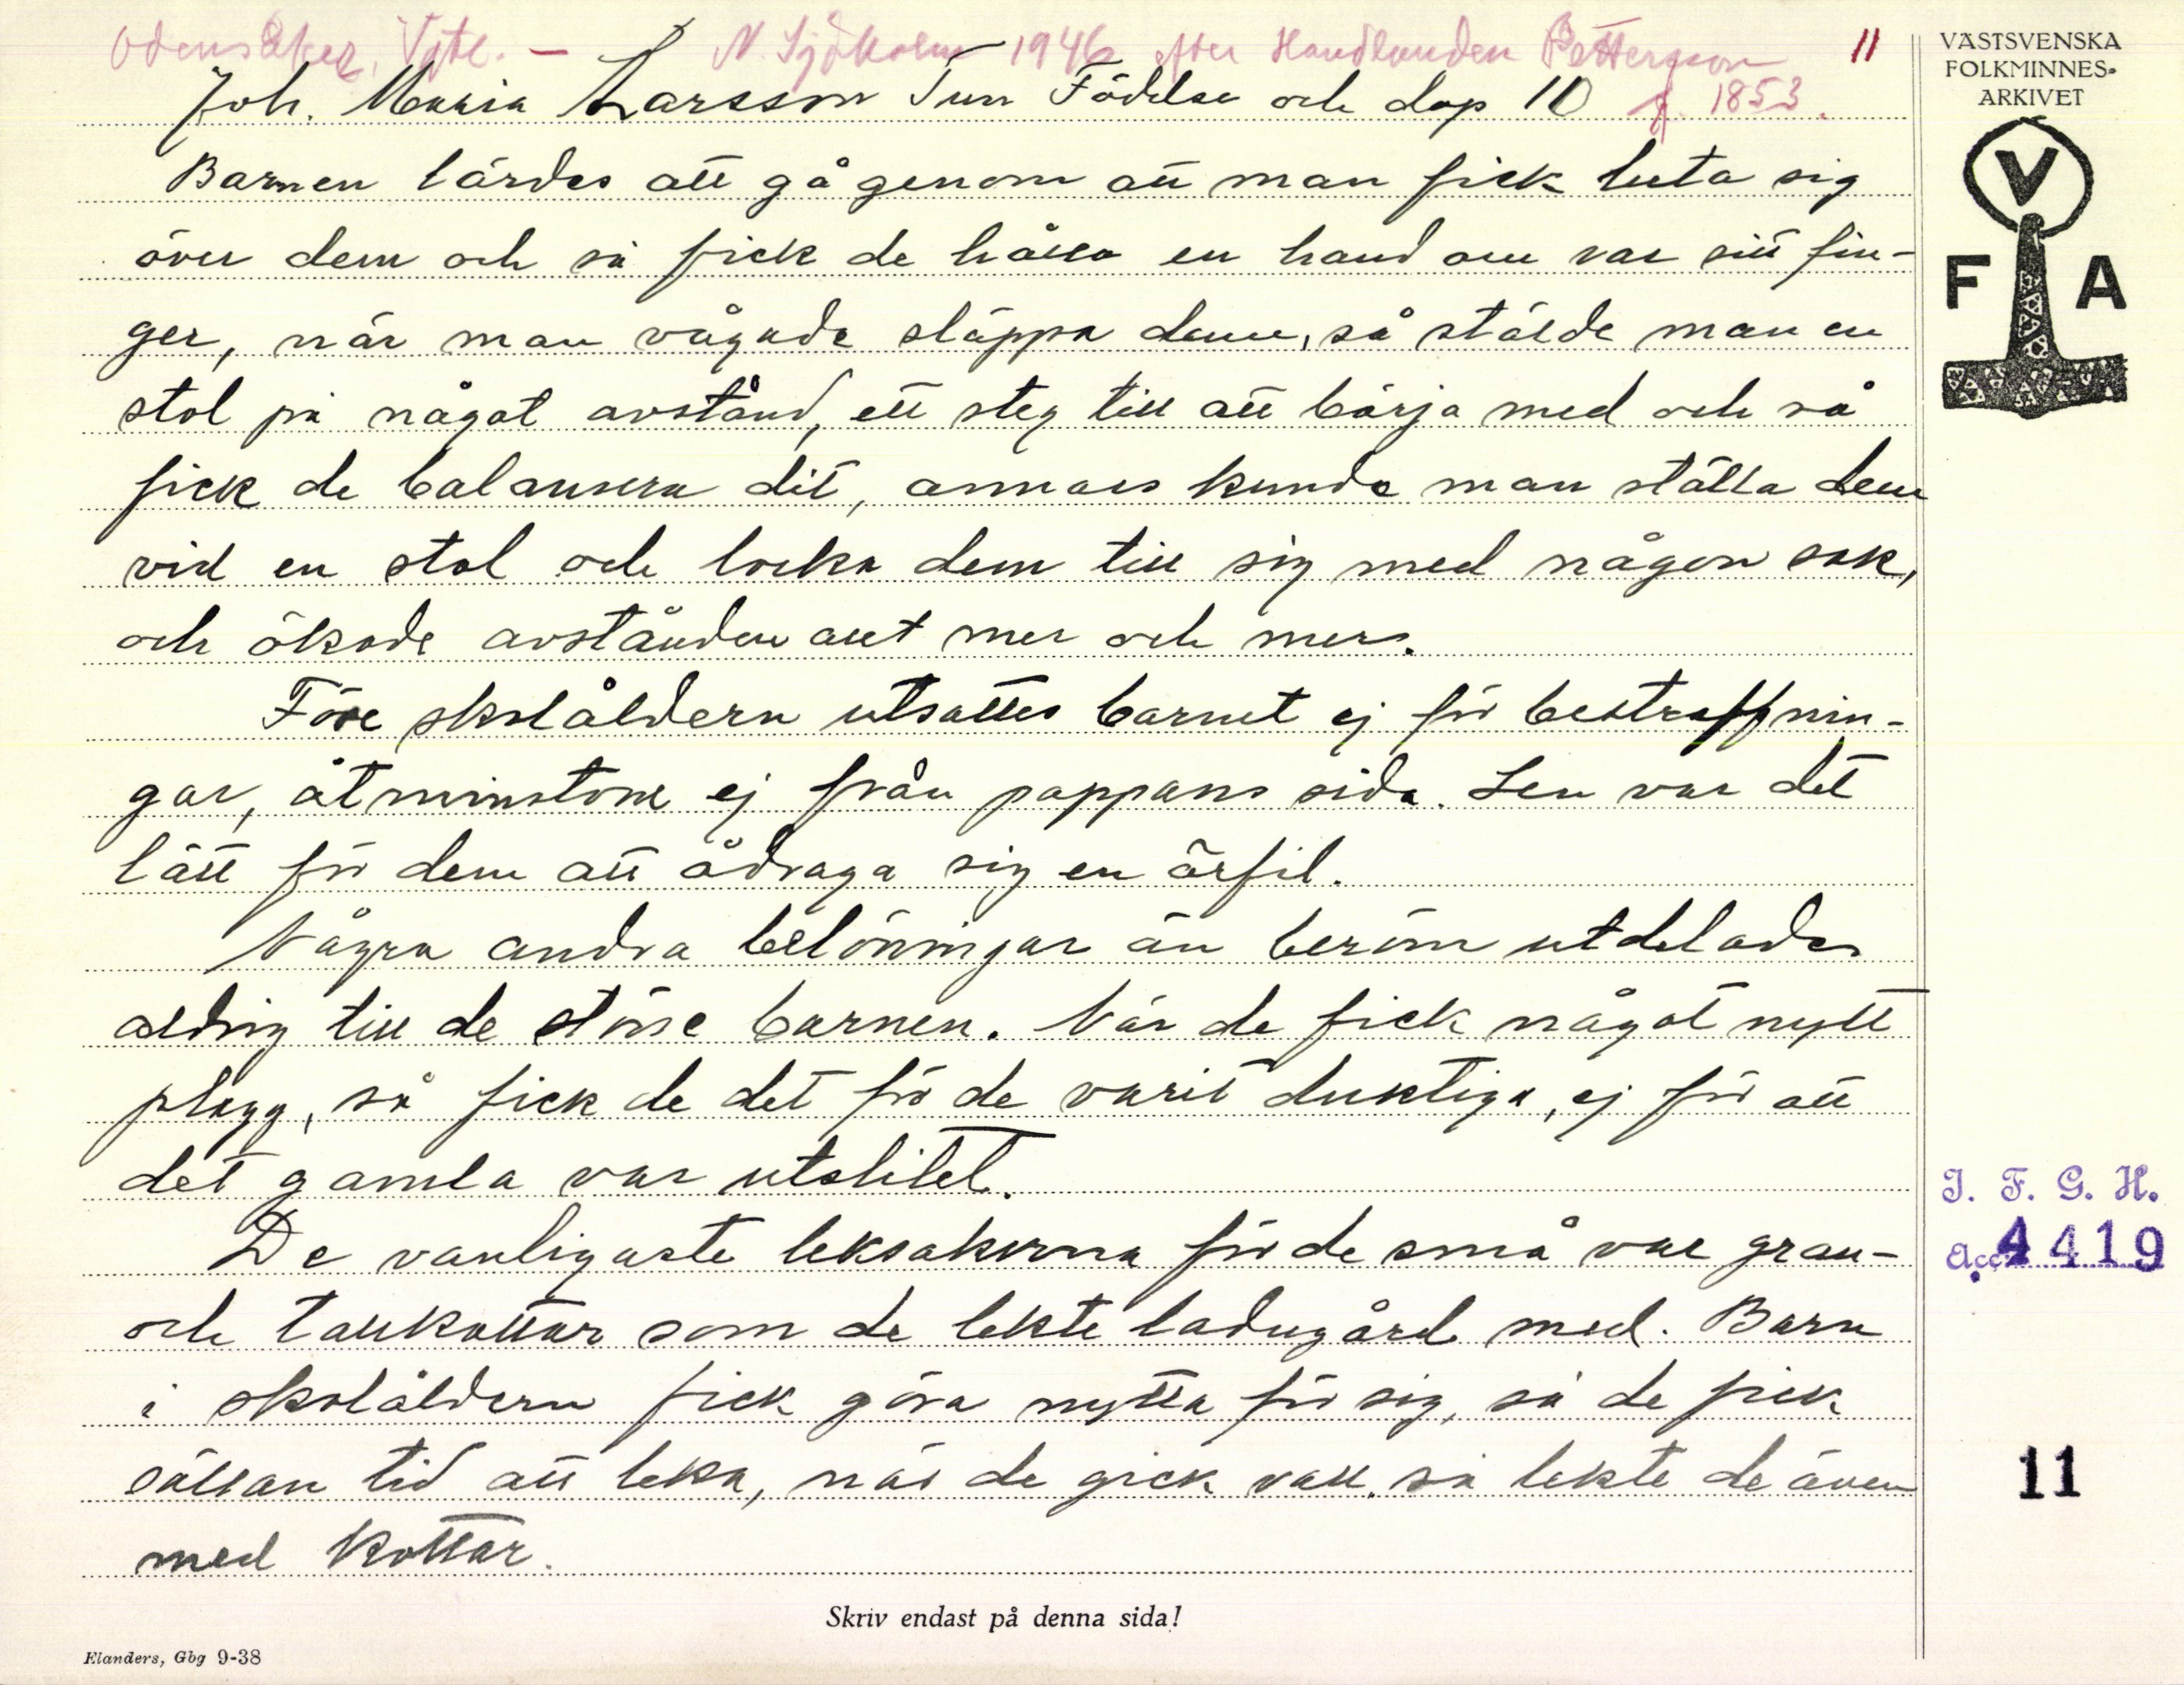 Odensåker, Vgtl. — N. Sjöholm 1946 efter Handlanden Pettersson 11
f. 1853.
Joh. Maria Larsson Tun Födelse och dop 10
Barnen lärdes att gå genom att man fick luta sig
över dem och så fick de hålla en hand om var sitt fin-
ger, när man vågade släppa dem, så stälde man en
stol på något avstånd, ett steg till att börja med och så
fick de balansera dit, annars kunde man ställa dem
vid en stol och locka dem till sig med någon sak,
och ökade avstånden allt mer och mer.
Före skolåldern utsattes barnet ej för bestraffnin-
gar, åtminstone ej från pappans sida. Sen var det
lätt för dem att ådraga sig en örfil.
Några andra belöningar än beröm utdelades
aldrig till de större barnen. När de fick något nytt
plagg, så fick de det för de varit duktiga, ej för att
det gamla var utslitet.
De vanligaste leksakerna för de små var gran-
och tallkottar som de lekte ladugård med. Barn
i skolåldern fick göra nytta för sig, så de fick
sällan tid att leka, när de gick vall, så lekte de även
med kottar.
Skriv endast på denna sida!
Elanders, Gbg 9-38
VÄSTSVENSKA
FOLKMINNES-
ARKIVET
V
F A
I. F. G. H.
Acc. 4419
11